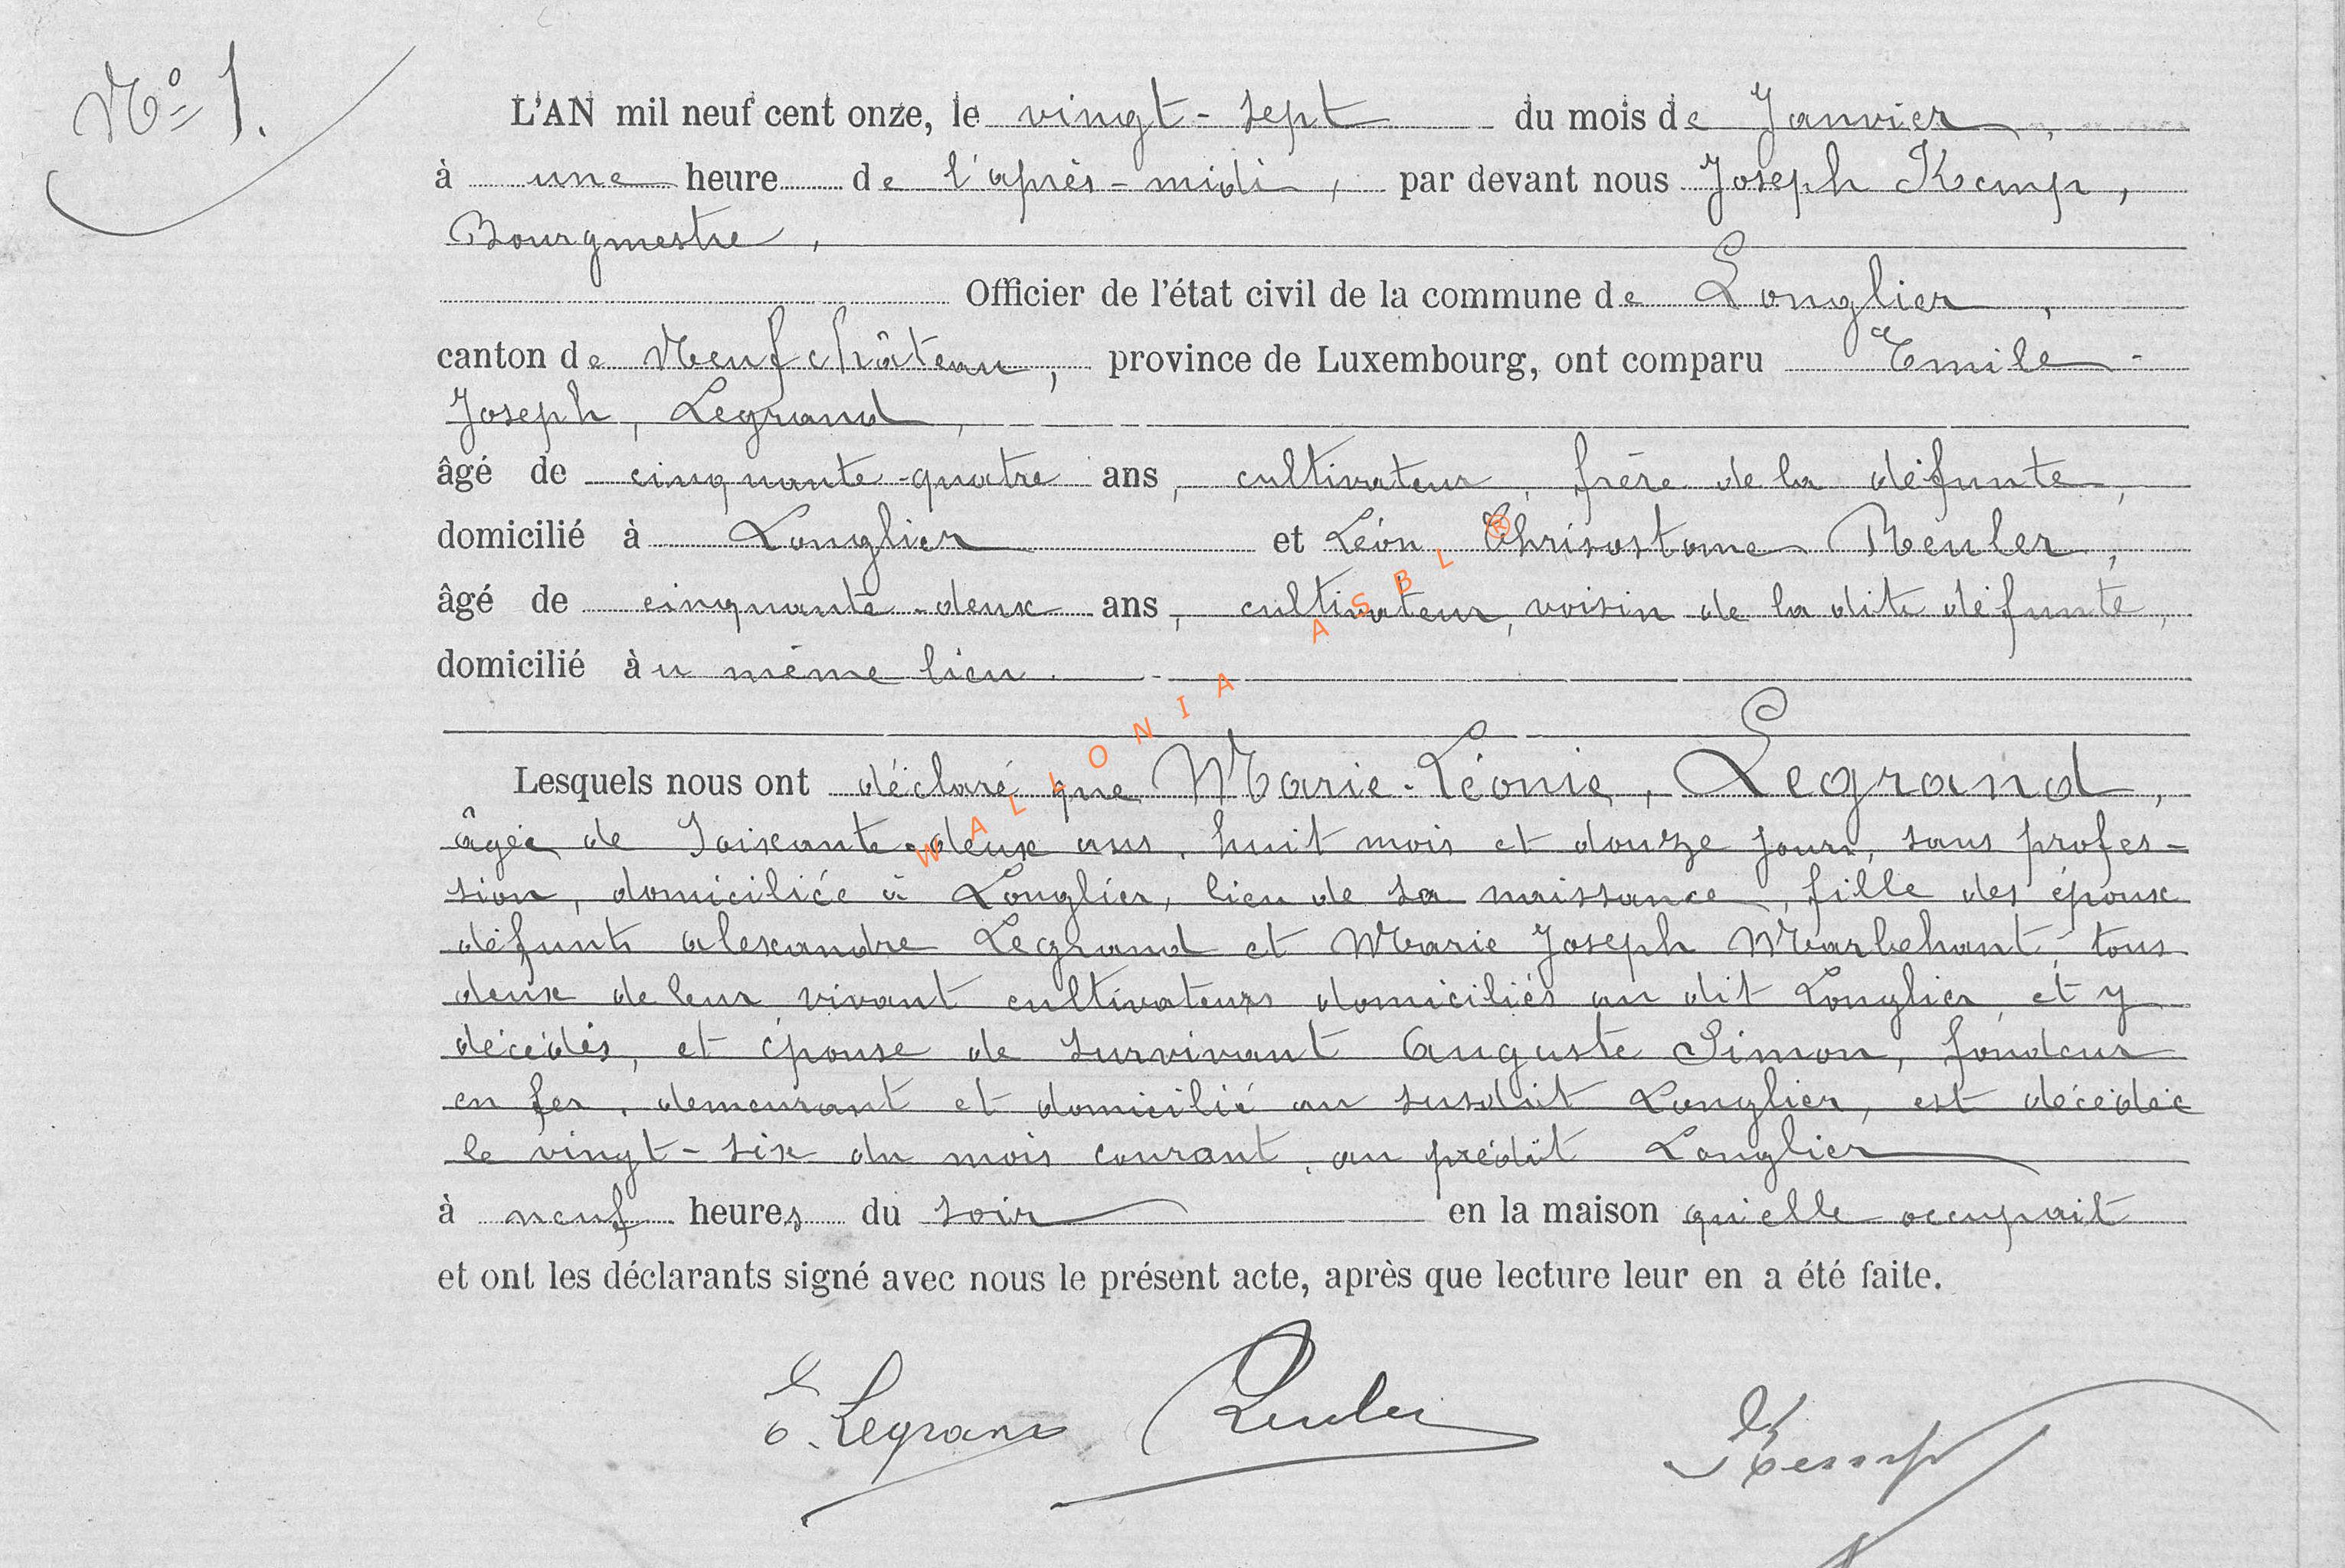 N° 1.
L'AN mil neuf cent onze, le vingt-sept du mois de Janvier,
à une heure de l'après-midi, par devant nous Joseph Kemp,
Bourgmestre,
Officier de l'état civil de la commune de Longlier,
canton de Neufchâteau, province de Luxembourg, ont comparu Emile-
Joseph, Legrand,
âgé de cinquante-quatre ans, cultivateur, frère de la défunte,
domicilié à Longlier et Léon Chrisostome Reuler,
âgé de cinquante-deux ans, cultivateur, voisin de la dite défunte,
domicilié au même lieu.
Lesquels nous ont déclaré que Marie-Léonie, Legrand,
âgée de soixante-deux ans, huit mois et douze jours, sans profes-
sion, domiciliée à Longlier, lieu de sa naissance, fille des époux
défunts Alexandre Legrand et Marie Joseph Marbehant, tous
deux de leur vivant cultivateurs domiciliés au dit Longlier et y
décédés, et épouse de survivant Auguste Simon, fondeur
en fer, demeurant et domicilié au susdit Longlier, est décédée
le vingt-six du mois courant, au prédit Longlier
à neuf heures du soir en la maison qu'elle occupait
et ont les déclarants signé avec nous le présent acte, après que lecture leur en a été faite.
E. Legrand Reuler Kemp
WALLONIA ASBL ®